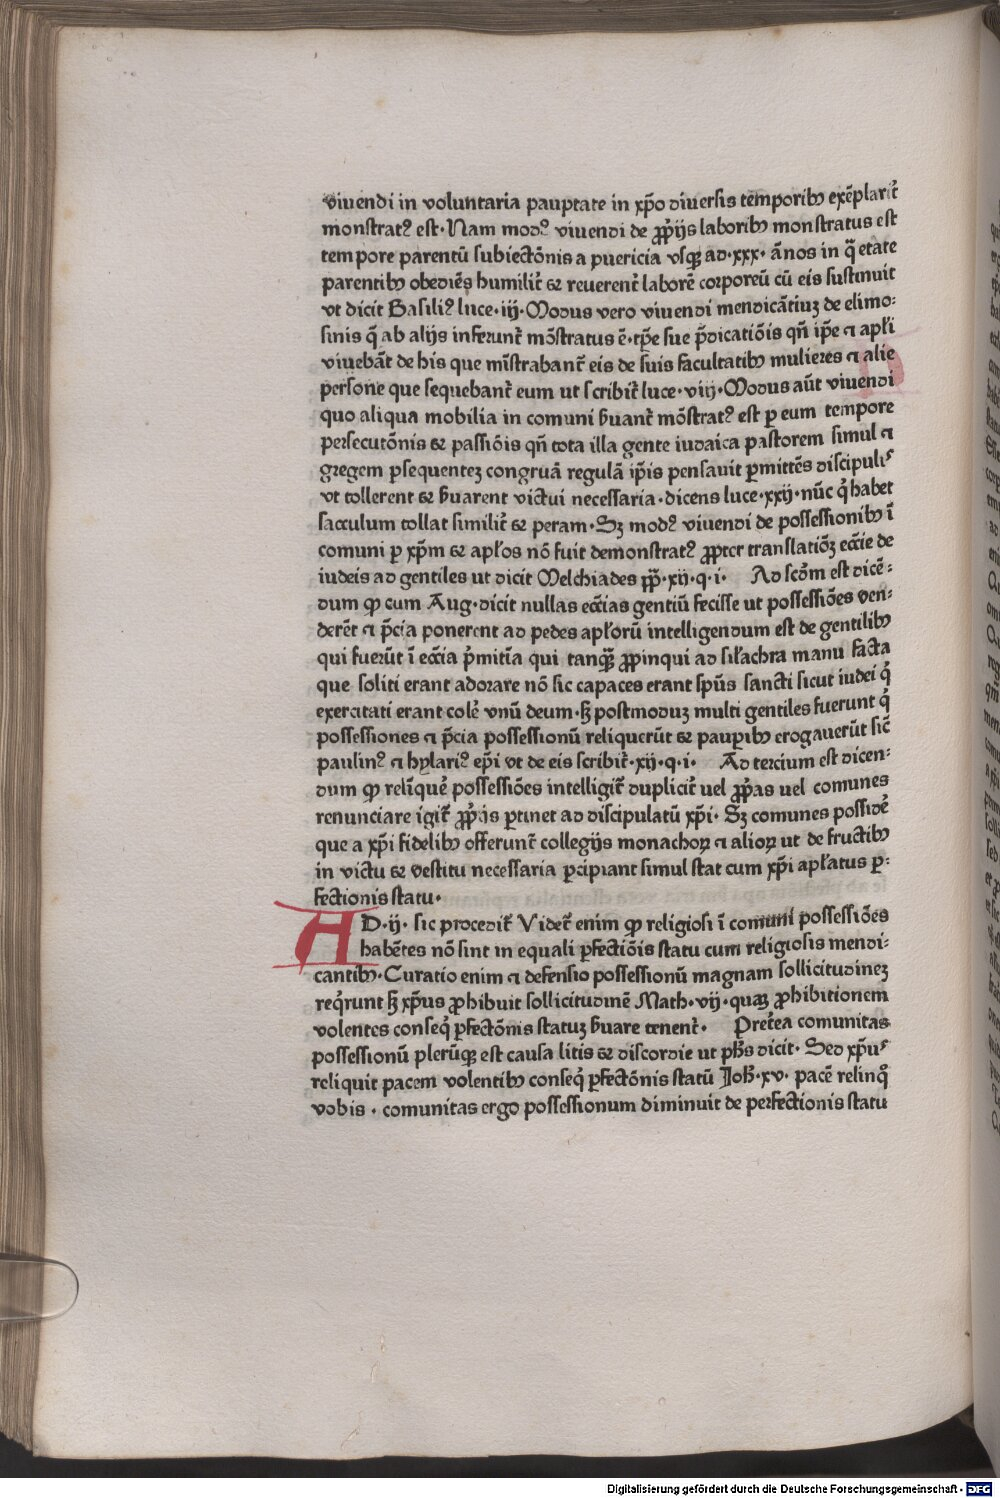 viuendi in voluntaria pauptate in xp̄o diuersis temporibꝰ exēplarit᷑
monstratꝰ est· Nam modꝰ viuendi de ꝓp̄ijs laboribꝰ monstratus est
tempore parentū subiectōnis a puericia vsqꝫ ad·xxx· ānos in q̄ etate
parentibꝰ obediēs humilit᷑ ⁊ reuerent᷑ laborē corporeū cū eis sustinuit
vt dicit Basiliꝰ luce·iij·Modus vero viuendi mendicātiuꝫ de elimo⸗
sinis q̄ ab alijs inferunt᷑ mōstratus ē·tp̄e sue p̄dicatiōis qn̄ ip̄e ⁊ apl̄i
viuebāt de his que mīstrabant᷑ eis de suis facultatibꝰ mulieres ⁊ alie
persone que sequebant᷑ eum ut scribit᷑ luce·viij·Modus aūt viuendi
quo aliqua mobilia in comuni ẜuant᷑ mōstratꝰ est p eum tempore
persecutōnis ⁊ passiōis qn̄ tota illa gente iudaica pastorem simul ⁊
gregem ꝑsequenteꝫ congruā regulā ip̄is pensauit ꝑmittēs discipulis
vt tollerent ⁊ ẜuarent victui necessaria·dicens luce·xxij·nūc q̇ habet
sacculum tollat similit᷑ ⁊ peram·Sꝫ modꝰ viuendi de possessionibꝰ ī
comuni ꝑ xp̄m ⁊ apl̄os nō fuit demonstratꝰ ꝓpter translatiōꝫ eccīe de
iudeis ad gentiles ut dicit Melchiades ꝓp̄·xij·q·i· Ad scd̄m est dicē⸗
dum ꝙ cum Aug·dicit nullas ecc̄ias gentiū fecisse ut possessiōes ven⸗
derēt ⁊ p̄cia ponerent ad pedes apl̄orū intelligendum est de gentilibꝰ
qui fuerūt ī ecc̄ia p̄mitīa qui tanqꝫ ꝓpinqui ad sil̄achra manu facta
que soliti erant adorare nō sic capaces erant sp̄us sancti sicut iudei q̇
exercitati erant colē vnū deum·sꝫ postmoduꝫ multi gentiles fuerunt q̇
possessiones ⁊ p̄cia possessionū reliquerūt ⁊ pauꝑibꝰ erogauerūt sic̄
paulinꝰ ⁊ hylariꝰ ep̄i vt de eis scribit᷑·xij·q·i· Ad tercium est dicen⸗
dum ꝙ relīque᷑ possessiōes intelligit᷑ duplicit᷑ uel ꝓp̄as uel comunes
renunciare igit᷑ ꝓp̄ijs ꝑtinet ad discipulatū xp̄i· Sꝫ comunes posside᷑
que a xp̄i fidelibꝰ offerunt᷑ collegijs monachoꝝ ⁊ alioꝝ ut de fructibꝰ
in victu ⁊ vestitu necessaria ꝑcipiant simul stat cum xp̄i apl̄atus ꝑ⸗
fectionis statu·
AD·ij· sic procedit᷑ Videt᷑ enim ꝙ religiosi ī comuni possessiōes
habētes nō sint in equali ꝑfectiōis statu cum religiosis mendi⸗
cantibꝰ·Curatio enim ⁊ defensio possessionū magnam sollicitudineꝫ
req̇runt sꝫ xp̄us ꝓhibuit sollicitudinē Math·vij·quaꝫ ꝓhibitionem
volentes conseq̇ ꝑfectōnis statuꝫ ẜuare tenent᷑· Preťea comunitas
possessionū plerūqꝫ est causa litis ⁊ discordie ut ph̄s dicit· Sed xp̄us
reliquit pacem volentibꝰ conseq̇ ꝑfectōnis statū Joh̄·xv· pacē relinq̄
vobis · comunitas ergo possessionum diminuit de perfectionis statu
Digitalisierung gefördert durch die Deutsche Forschungsgemeinschaft · DFG